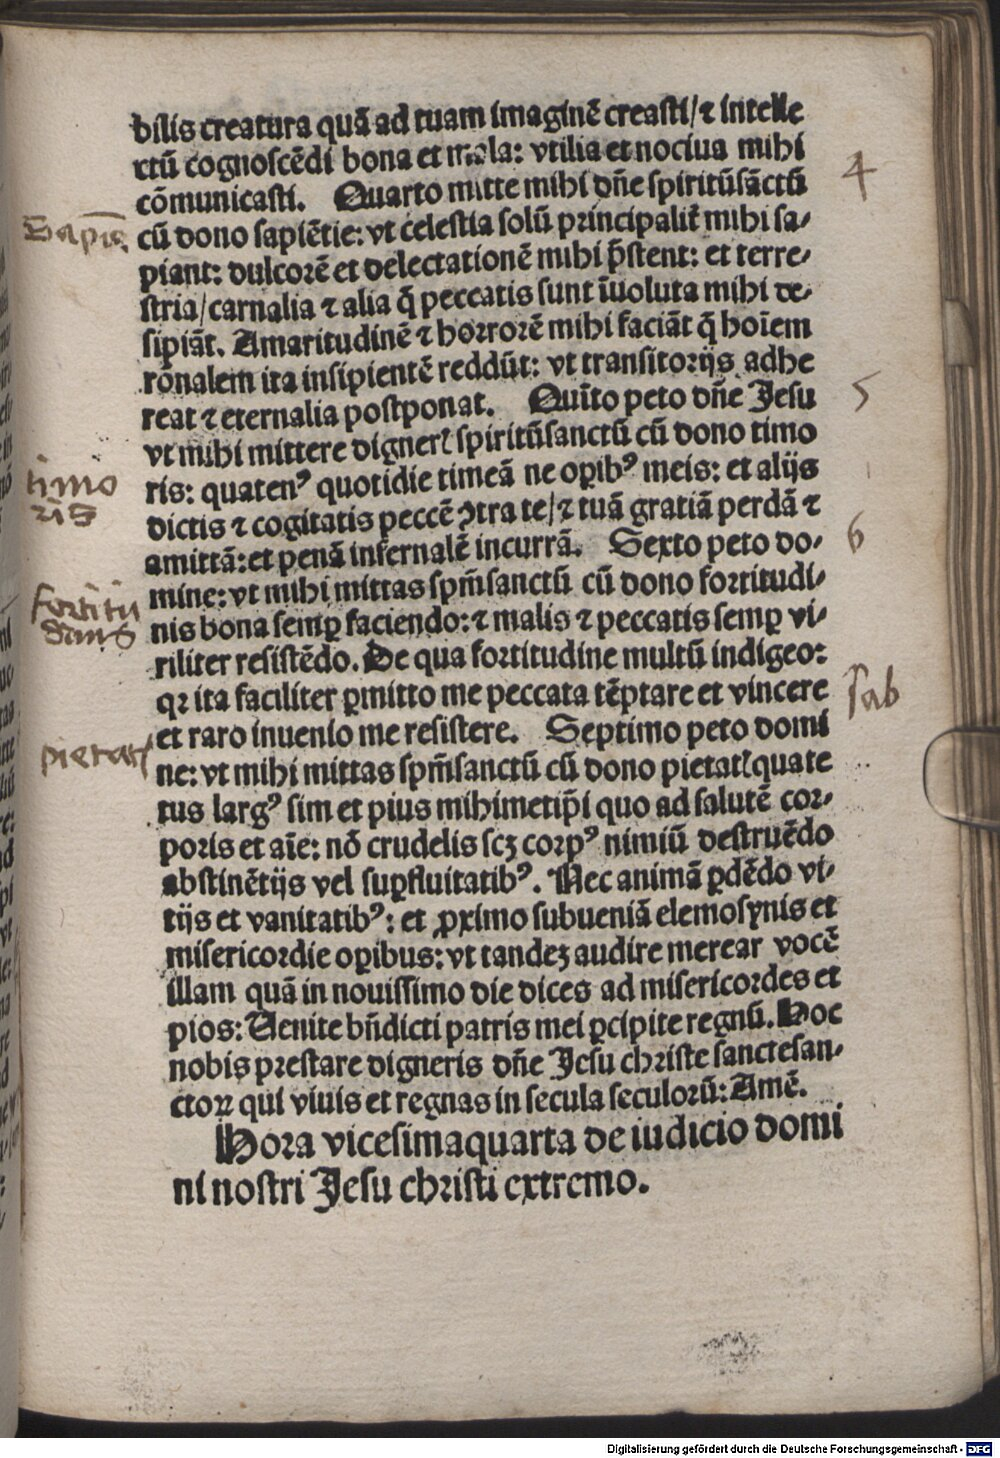 bilis creatura quā ad tuam imaginē creasti/⁊ intelle
ctū cognoscēdi bona et mala: vtilia et nociua mihi
cōmunicasti. Quarto mitte mihi dn̄e spiritūsāctū
4
cū dono sapiētie: vt celestia solū principalit̄ mihi sa-
Sapiē
piant: dulcorē et delectationē mihi p̄stent: et terre-
stria/carnalia ⁊ alia q̄ peccatis sunt īuoluta mihi de-
sipiāt. Amaritudinē ⁊ horrorē mihi faciāt q̄ hoīem
rōnalem ita insipientē reddūt: vt transitorijs adhe
reat ⁊ eternalia postponat. Quīto peto dn̄e Jesu
5
vt mihi mittere dignerꝭ spiritūsanctū cū dono timo
ris: quatenꝰ quotidie timeā ne oꝑibꝰ meis: et alijs
timo
ris
dictis ⁊ cogitatis peccē ꝯtra te/⁊ tuā gratiā perdā ⁊
amittā: et penā infernalē incurrā. Sexto peto do-
6
mine: vt mihi mittas spm̄sanctū cū dono fortitudi-
fortitu
dinis
nis bona semꝑ faciendo: ⁊ malis ⁊ peccatis semꝑ vi-
riliter resistēdo. De qua fortitudine multū indigeo:
qꝛ ita faciliter ꝑmitto me peccata tēptare et vincere
et raro inuenio me resistere. Septimo peto domi
pietatꝭ
ne: vt mihi mittas spm̄sanctū cū dono pietatꝭ quate
nus largꝰ sim et pius mihimetip̄i quo ad salutē cor-
poris et aīe: nō crudelis scꝫ corpꝰ nimiū destruēdo
abstinētijs vel suꝑfluitatibꝰ. Nec animā ꝑdēdo vi-
tijs et vanitatibꝰ: et ꝓximo subueniā elemosynis et
misericordie oꝑibus: vt tandeꝫ audire merear vocē
illam quā in nouissimo die dices ad misericordes et
pios: Uenite bn̄dicti patris mei ꝑcipite regnū. Hoc
nobis prestare digneris dn̄e Jesu christe sanctesan-
ctoꝝ qui viuis et regnas in secula seculorū: Amē.
Hora vicesimaquarta de iudicio domi
ni nostri Jesu christi extremo.
Digitalisierung gefördert durch die Deutsche Forschungsgemeinschaft - DFG